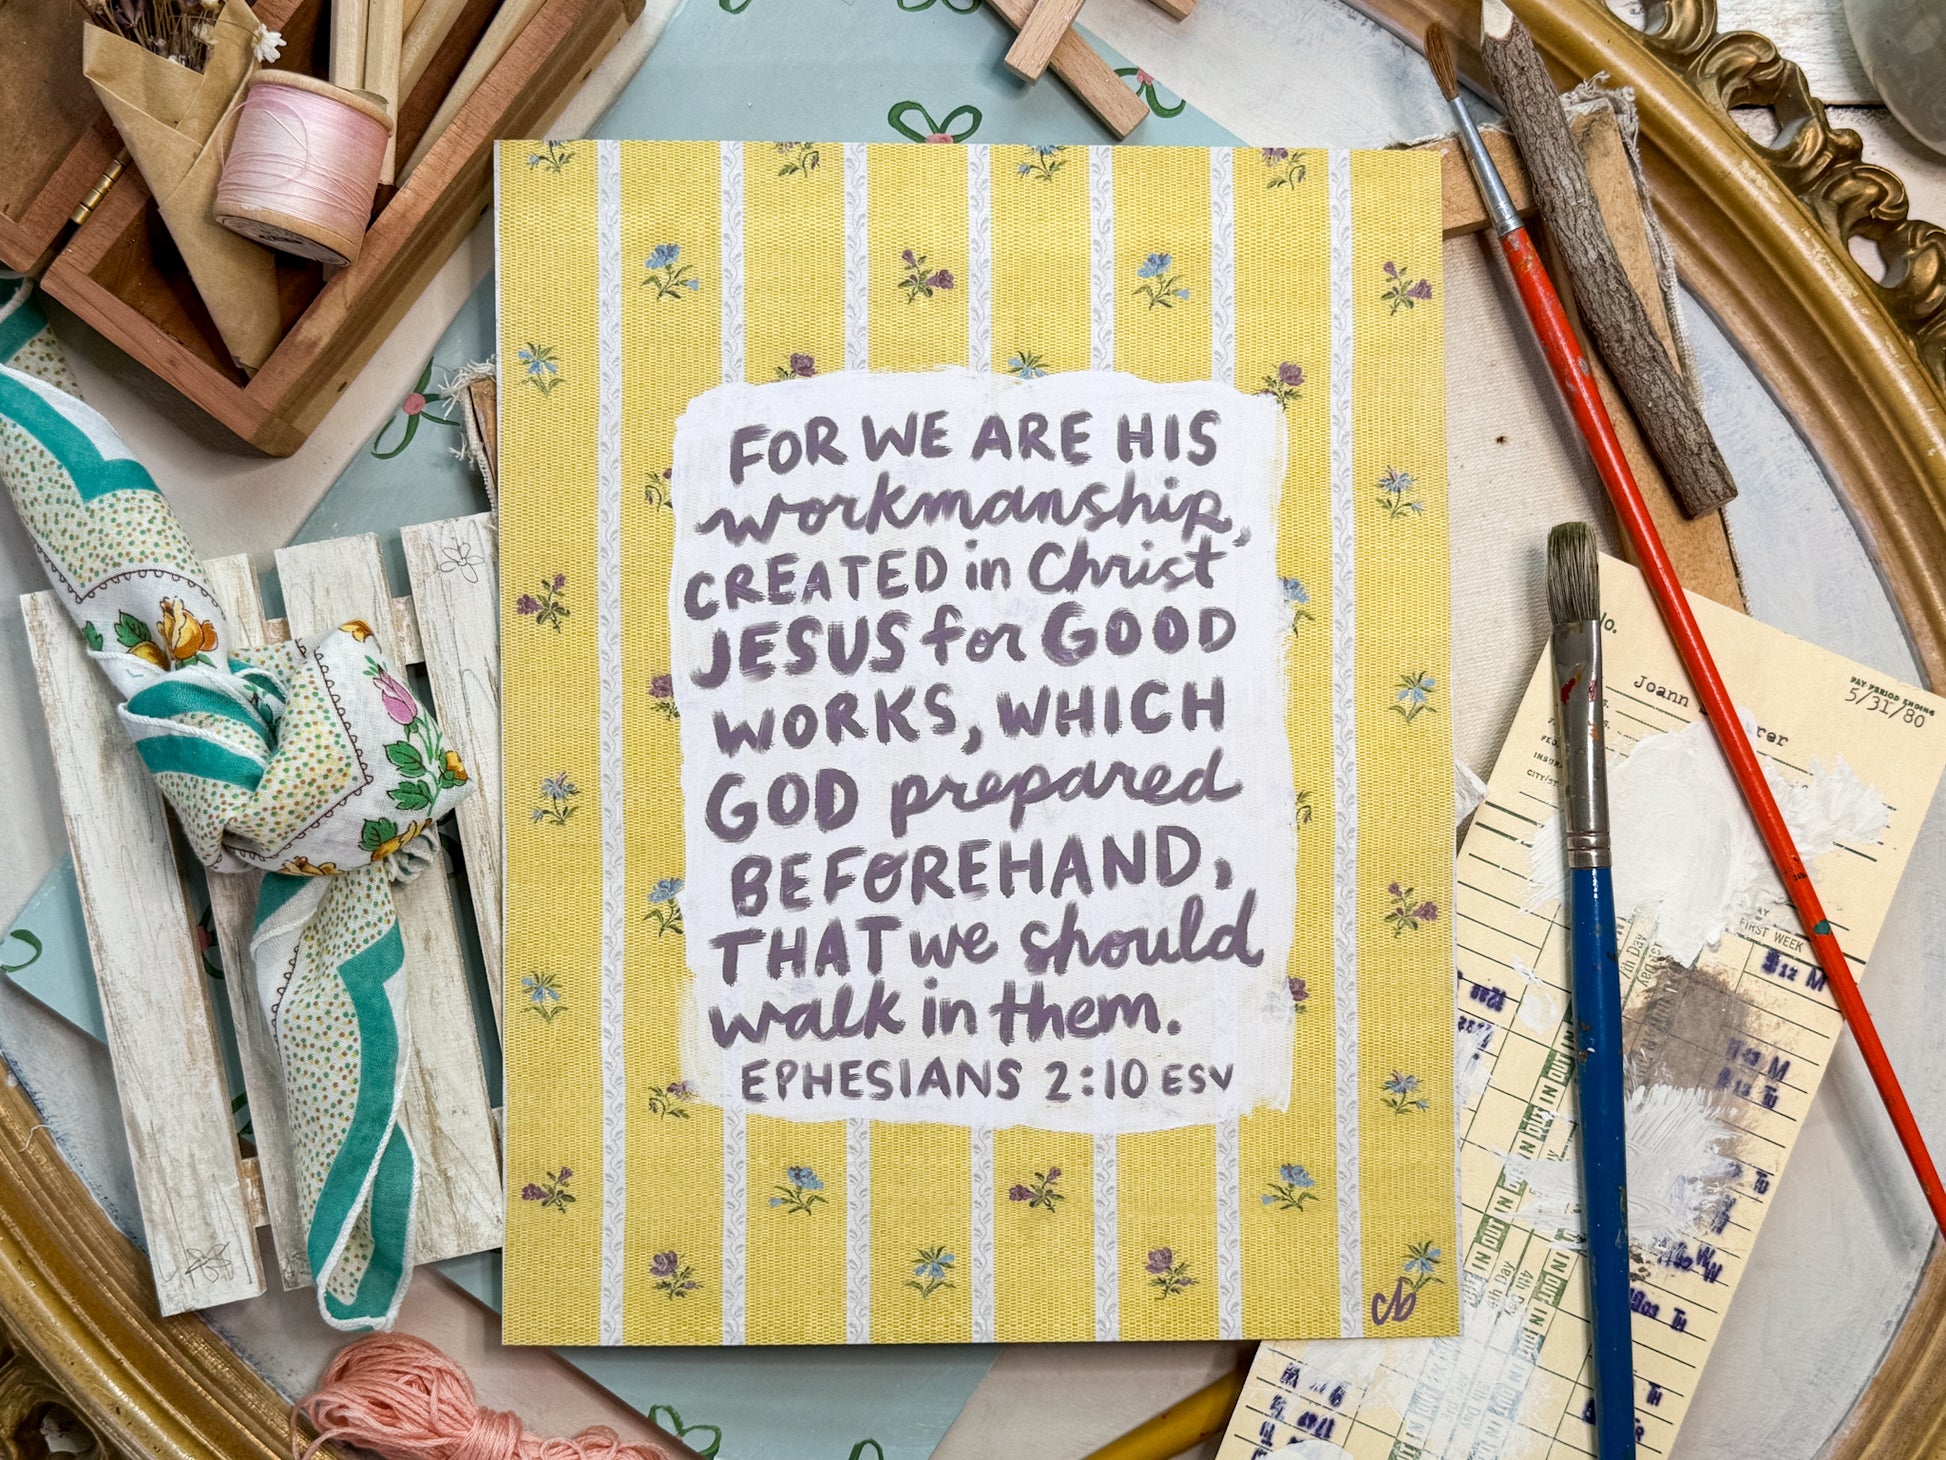 FOR WE ARE HIS
workmanship,
CREATED in Christ
JESUS for GOOD
WORKS, WHICH
GOD prepared
BEFOREHAND,
THAT we should
walk in them.
EPHESIANS 2:10 ESV
cb
No.
Joann
PAY PERIOD ENDING
5/31/80
FIRST WEEK